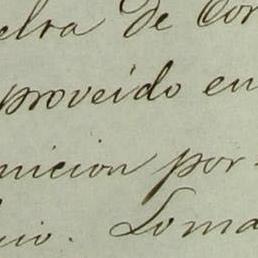 elra de Cor
proveido en
nicion por
io. Loma